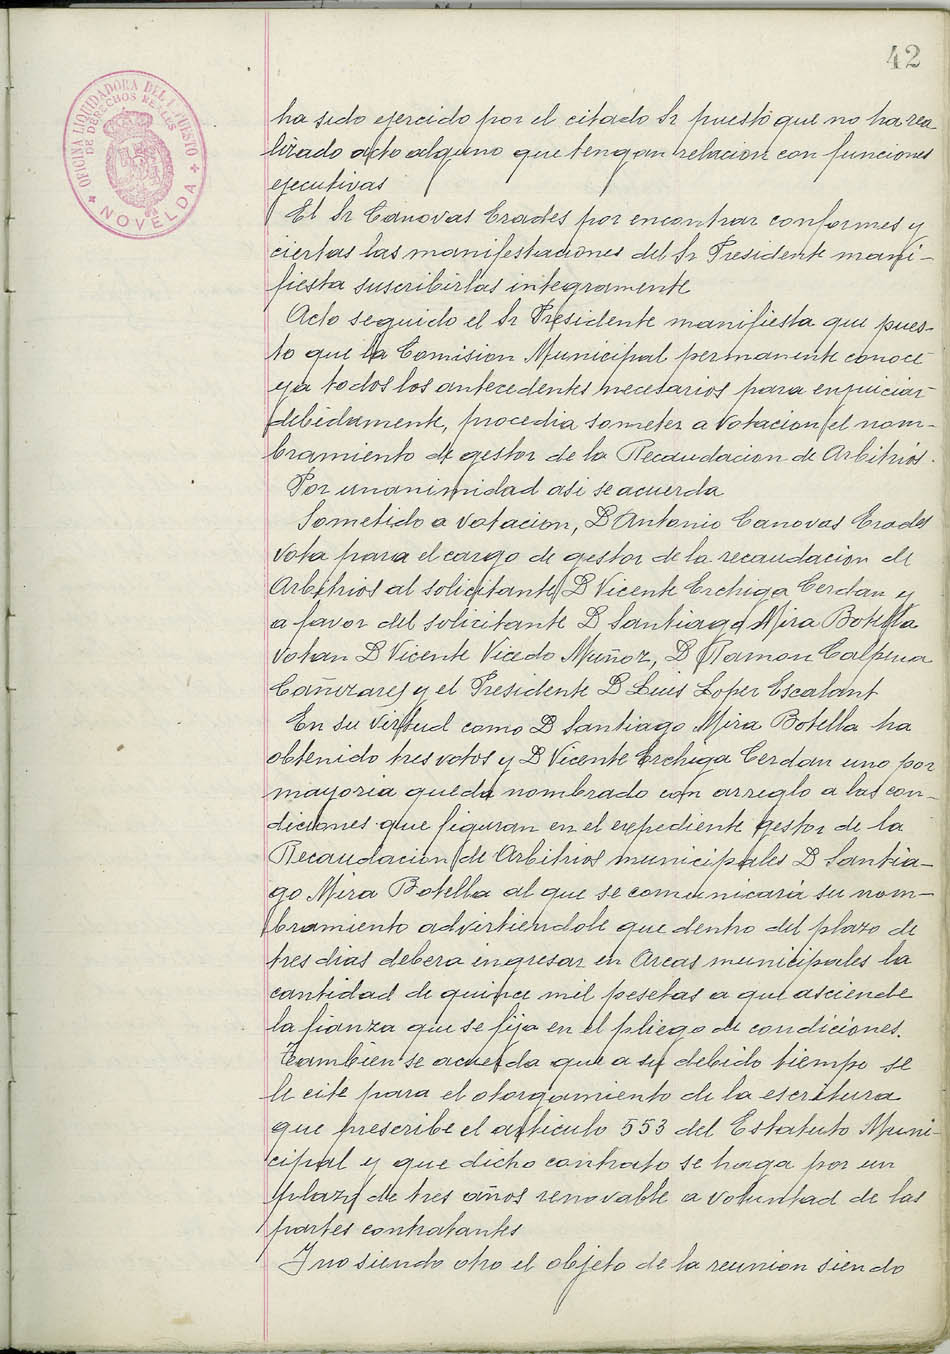 42
OFICINA LIQUIDADORA DEL IMPUESTO
DE DERECHOS REALES
NOVELDA
ha sido ejercido por el citado Sr puesto que no ha rea
lizado acto alguno que tengan relacion con funciones
ejecutivas
El Sr Canovas Erades por encontrar conformes y
ciertas las manifestaciones del Sr Presidente mani-
fiesta suscribirlas integramente
Acto seguido el Sr Presidente manifiesta que pues-
to que la Comision Municipal permanente conoce
ya todos los antecedentes necesarios para enjuiciar
debidamente, procedia someter a votacion el nom-
bramiento de gestor de la Recaudacion de Arbitrios.
Por unanimidad asi se acuerda
Sometido a votacion, D Antonio Canovas Erades
vota para el cargo de gestor de la recaudacion de
Arbitrios al solicitante D Vicente Erchiga Cerdan y
a favor del solicitante D Santiago Mira Botella
votan D Vicente Vicedo Muñoz, D Ramon Calpena
Cañizares y el Presidente D Luis Loper Escalant
En su virtud como D Santiago Mira Botella ha
obtenido tres votos y D Vicente Erchiga Cerdan uno por
mayoria queda nombrado con arreglo a las con-
diciones que figuran en el expediente gestor de la
Recaudacion de Arbitrios municipales D Santia-
go Mira Botella al que se comunicará su nom-
bramiento advirtiendole que dentro del plazo de
tres dias debera ingresar en Arcas municipales la
cantidad de quince mil pesetas a que asciende
la fianza que se fija en el pliego de condiciones.
Tambien se acuerda que a su debido tiempo se
le cite para el otorgamiento de la escritura
que prescribe el articulo 553 del Estatuto Muni-
cipal y que dicho contrato se haga por un
plazo de tres años renovable a voluntad de las
partes contratantes
Y no siendo otro el objeto de la reunion siendo